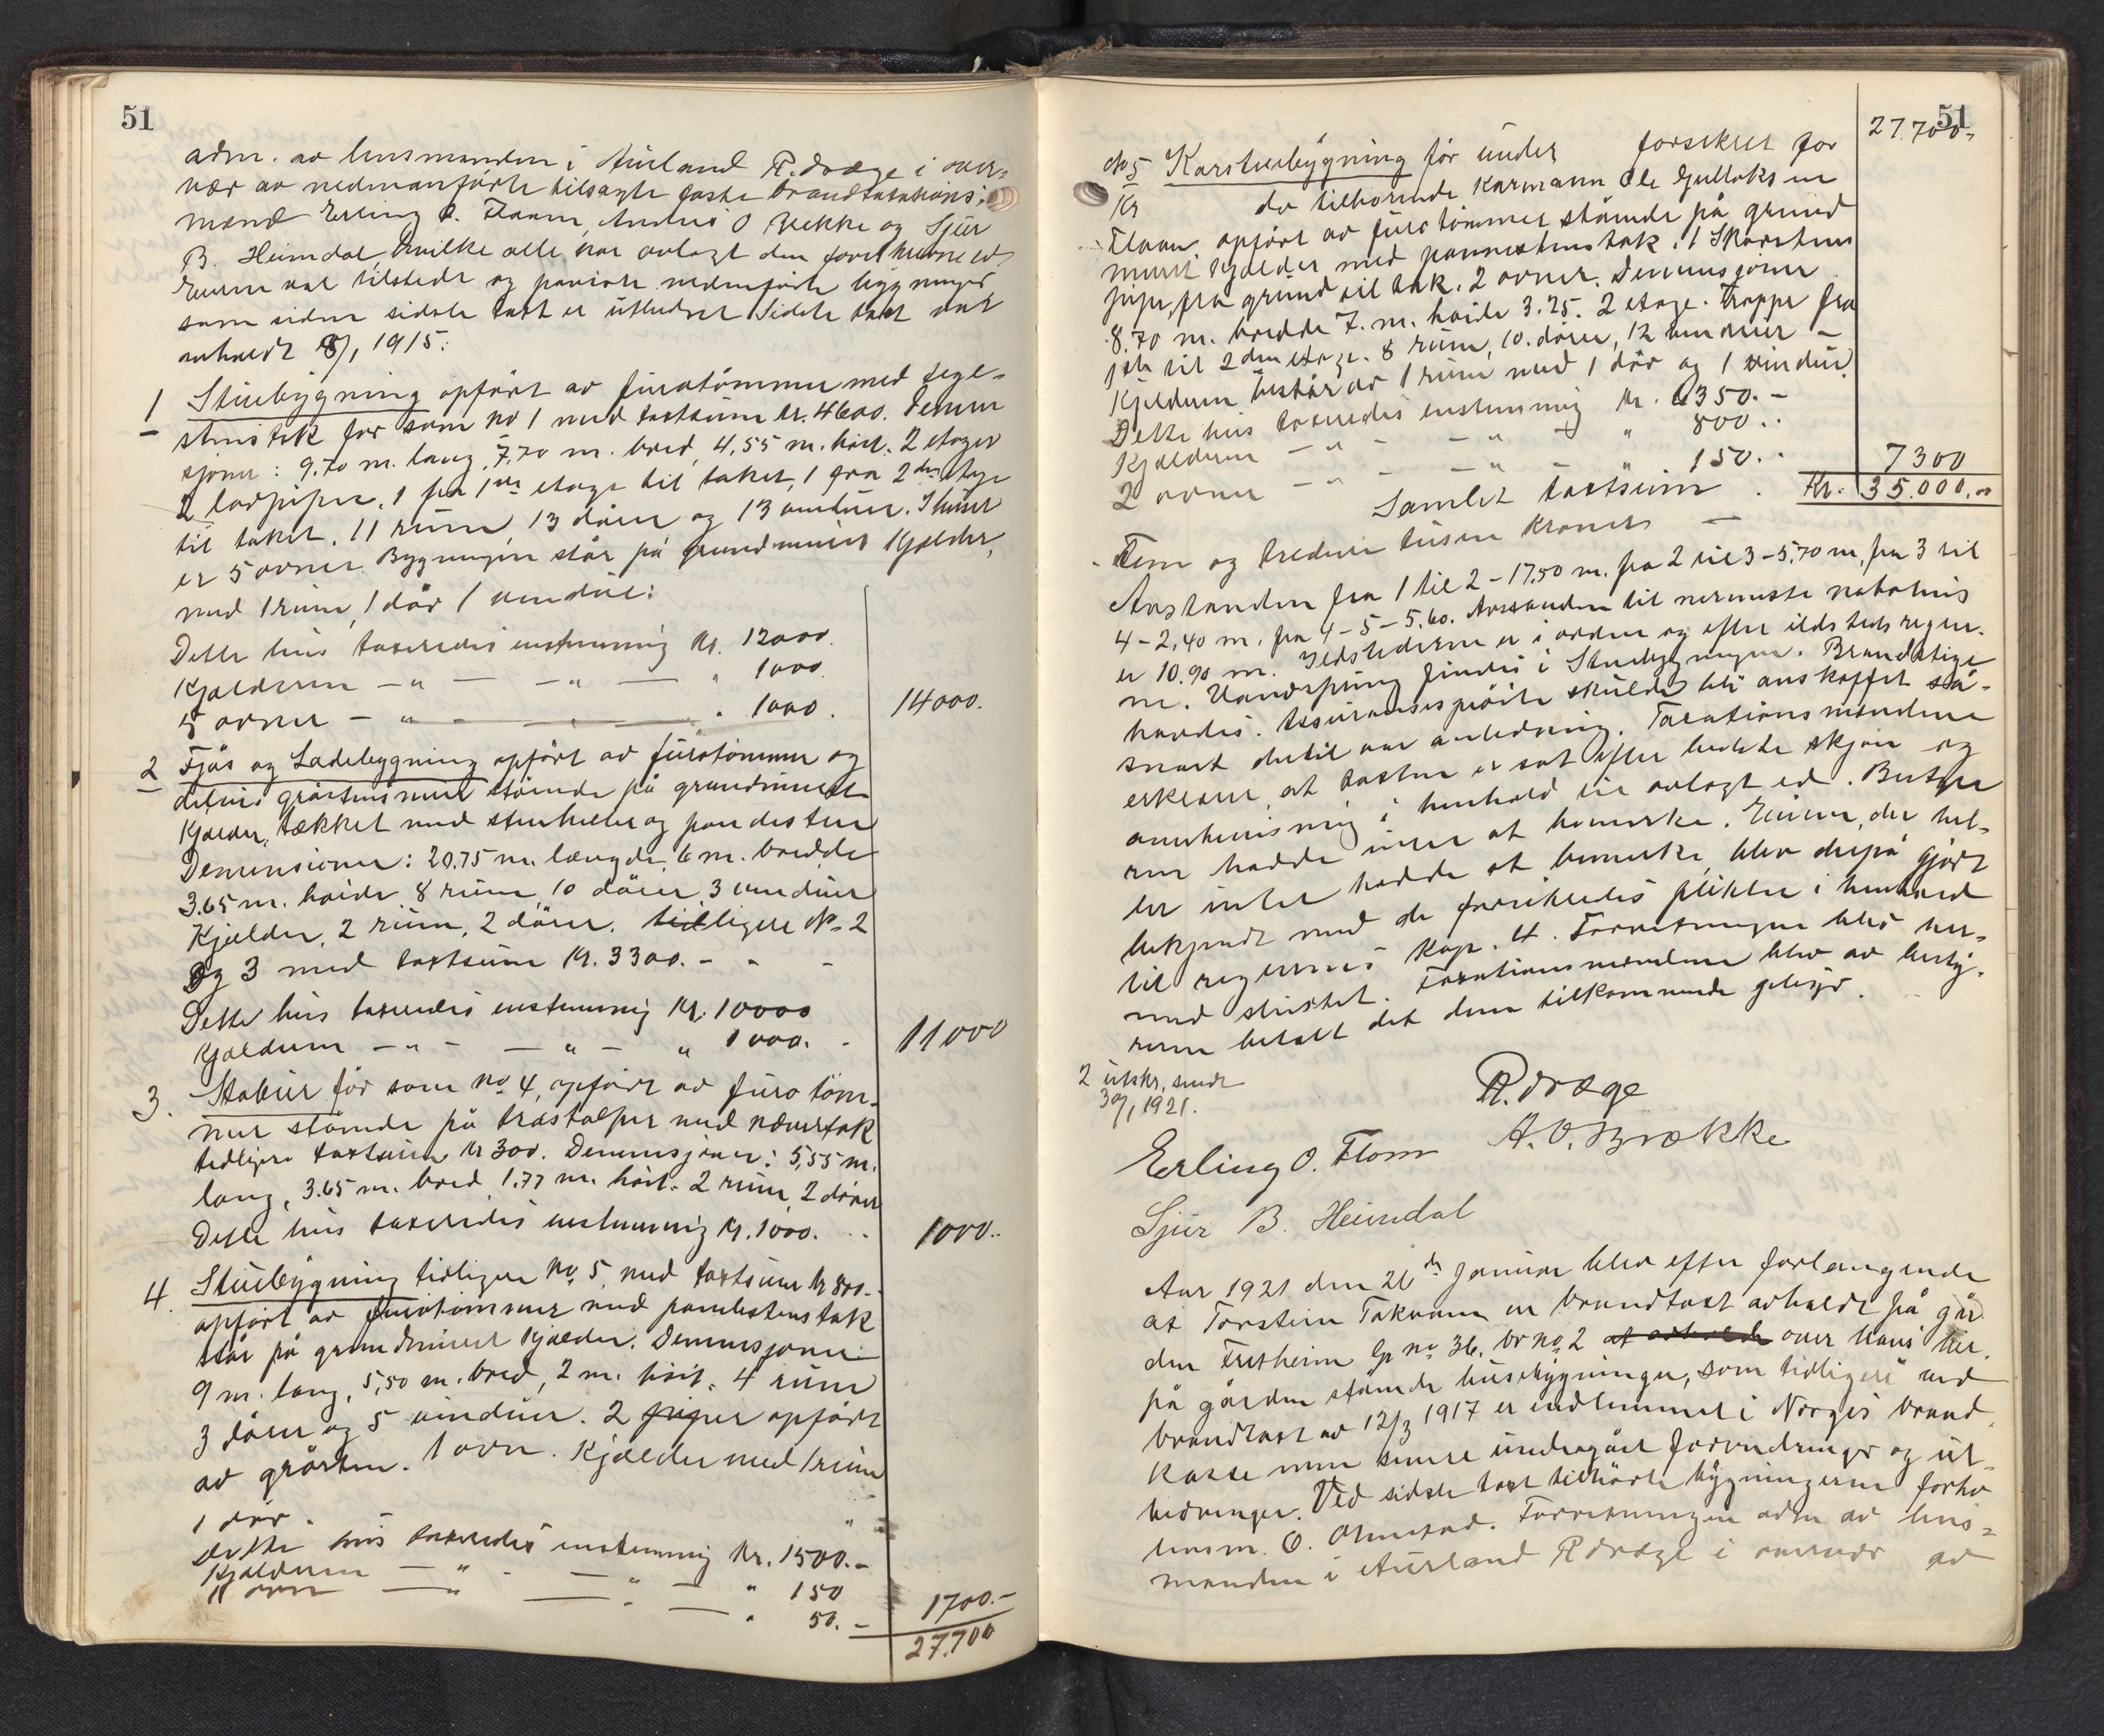 51
adm. av lensmanden i Aurland R. Dræge i over-
vær av nedmanførte tilsagte faste brandtaxations-
mænd Erling O. Flaam, Anders O Brekke og Sjur
B. Heimdal hvilke alle har avlagt den foreskrevne ed
Eieren var tilstede og paviste nedenførte bygninger
som siden sidste taxt er utbedret Sidste taxt var
avholdt 8/1 1915:
1 Stuebygning opført av furutømmer med tegl-
stenstak før som No 1 med taxtsum kr. 4600. Demen
sjoner: 9.70 m. lang, 7,70 m. bred, 4,55 m. høit. 2 etager
2 lodpiper, 1 fra 1ste etage til taket, 1 fra 2den etage
til taket. 11 rum, 13 dører og 13 vinduer. I huset
er 5 ovner. Bygningen står på grundmuret kjælder,
med 1 rum, 1 dør 1 vindue:
Dette hus taxeredes enstemmig kr. 12000.
Kjælderen - " - - " - " 1000.
5 ovner - " - " 1000. 14000.
2 Fjøs og Ladebygning opført av furutømmer og
delvis gråstensmur stående på grundmuret
Kjælder, tækket med stenheller og pandesten
Demensioner: 20.75 m. længde, 6 m. bredde
3.65 m. høide 8 rum 10 dører 3 vinduer
Kjælder, 2 rum, 2 dører. tidligere No 2
og 3 med taxtsum kr. 3300. - - -
Dette hus taxeredes enstemmig kr. 10000
Kjælderen - " - - " - " 1000. - 11000
3. Stabur før som No 4, opført av furutøm-
mer stående på træstolper med nævertak
tidligere taxtsum kr 300. Demensjoner: 5,55 m.
lang, 3.65 m. bred 1.77 m. høit. 2 rum, 2 dører
Dette hus taxeredes enstemmig kr. 1000. .. 1000..
4. Stuebygning tidligere No 5, med taxtsum kr 800.-
opført av furutømmer med pandestenstak
står på grundmuret kjælder. Demensjoner
9 m. lang, 5,50 m. bred, 2 m. høit. 4 rum
3 dører og 5 vinduer. 2 piper opført
av gråsten. 1 ovn. Kjælder med 1 rum
1 dør.
Dette hus taxeredes enstemmig kr. 1500.-
Kjælderen - " - - " - " 150
1 ovn - " - " 50.- 1700.-
27.700
51
27.700,
No 5 Karstuebygning før under forsikret for
Kr do tilhørende Karmann Ole Gulleksen
Flaam opført av furutømmer stående på grund
muret kjælder med pannestenstak. 1 Skorstens
pipe fra grund til tak. 2 ovner. Demensjoner
8.70 m. bredde 7. m. høide 3.25. 2 etage. Trappe fra
1ste til 2den etage. 8 rum, 10. dører, 12 vinduer -
Kjelderen består av 1 rum med 1 dør og 1 vindue
Dette hus taxeredes enstemmig kr. 6350.-
Kjælderen - " - - " - " 800..
2 ovner - " - - " - 150.. 7300
Samlet taxtsum . Kr. 35.000.00
Fem og tredive tusen kroner -
Avstanden fra 1 til 2 - 17,50 m. fra 2 til 3 - 5,70 m, fra 3 til
4 - 2,40 m. fra 4 - 5 - 5.60. Avstanden til nermeste nabohus
er 10.90 m. Ildstederne er i orden og efter ildstedsregler-
ne. Vandspring findes i Stuebygningen. Brandstige
havdes. Assuransesprøite skulde bli anskaffet så-
snart dertil var anledning. Taxationsmændene
erklærer, at taxten er sat efter bedste skjøn og
overbevisning i henhold til avlagt ed. Besty-
rer hadde intet at bemerke. Eieren, der hel-
ler intet hadde at bemerke, blev derpå gjort
bekjendt med de forsikredes plikter i henhold
til reglernes kap. 4. Forretningen blev her-
med sluttet. Taxationsmændene blev av besty-
reren betalt det dem tilkommende gebyr.
2 utskr. sendt
30/1 1921.
R. Dræge
A. O. Brække
Erling O. Flom
Sjur B. Heimdal
Aar 1921 den 26de Januar blev efter forlangende
af Torstein Takvam en brandtaxt avholdt på går
den Fretheim Gr no 36. br no 2 at avholde over hans her
på gården stående husebygninger, som tidligere ved
brandtaxt av 12/3 1917 er indlemmet i Norges brand
kasse men senere undergået forandringer og ut-
bedringer. Ved sidste taxt tilhørte bygningerne forhv
lensm. O. Ohnstad. Forretningen adm av lens=
manden i Aurland R Dræge i overvær av